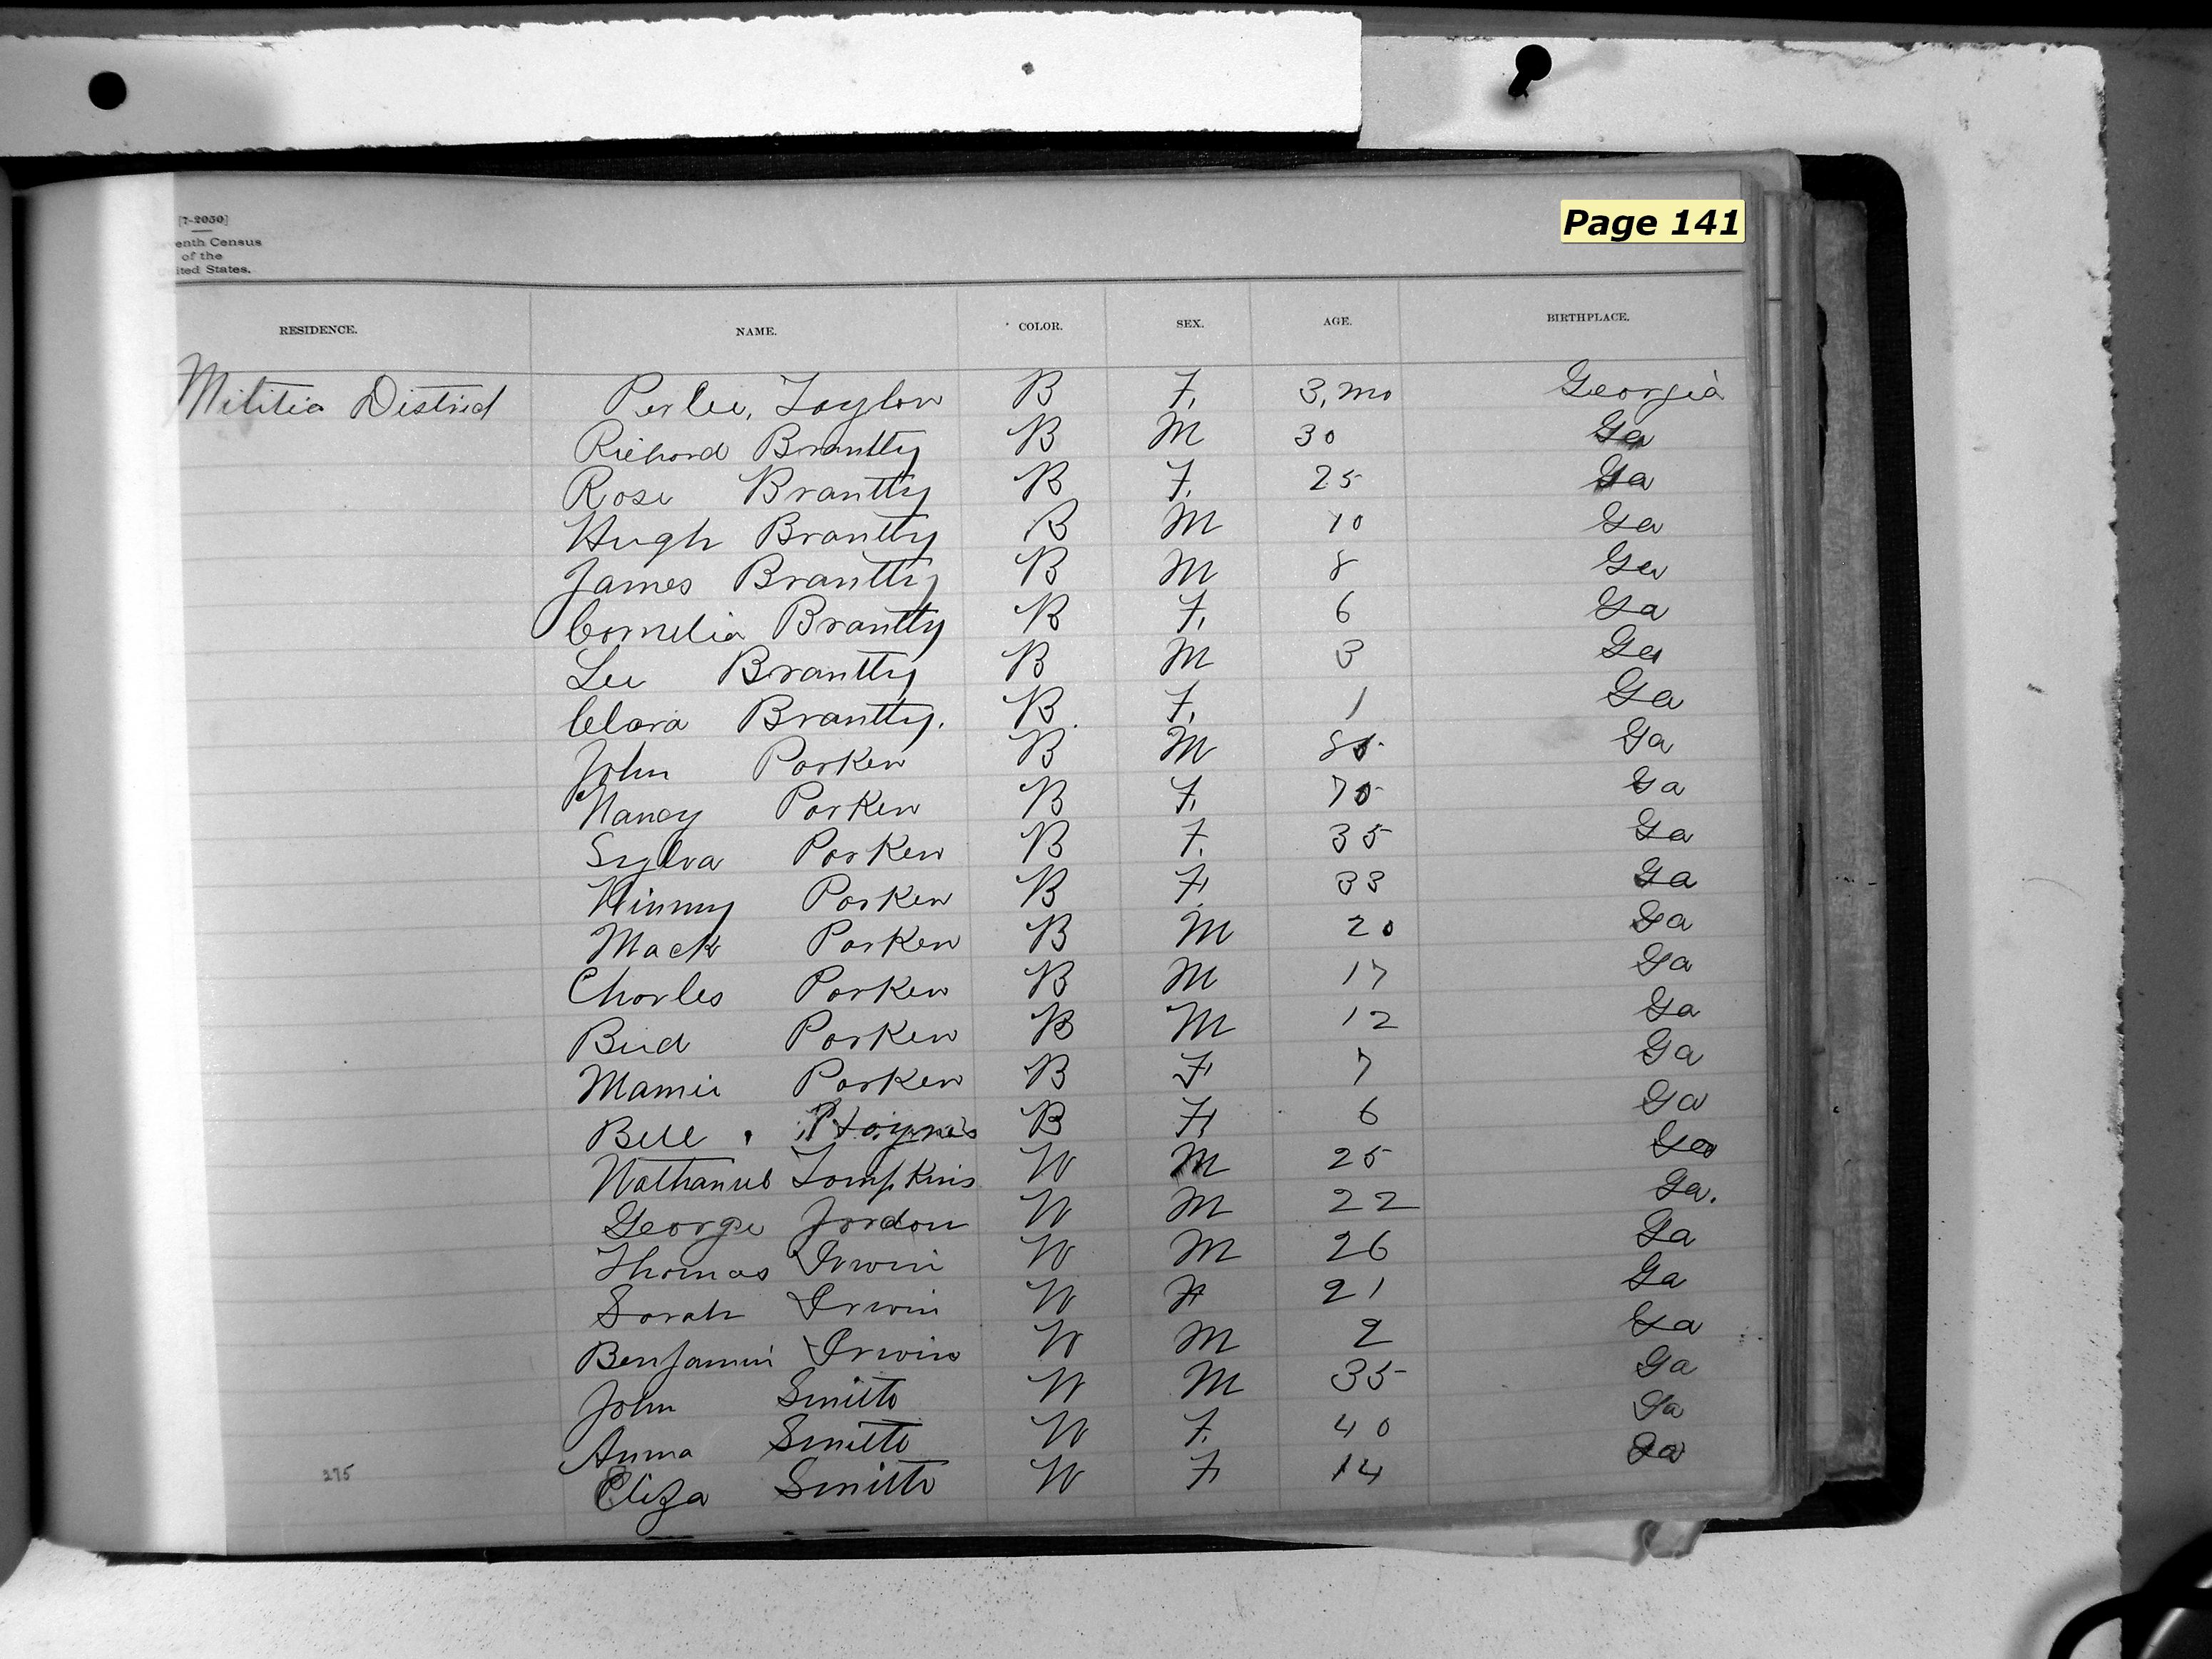 Page 141
[7-2050]
enth Census
of the
ited States.
RESIDENCE. NAME. COLOR. SEX. AGE. BIRTHPLACE.
Militia District Perlee, Taylor B F. 3, mo Georgia
Richard Brantly B M 30 Ga
Rose Brantly B F. 25 Ga
Hugh Brantly B M 10 Ga
James Brantly B M 8 Ga
Cornelia Brantly B F. 6 Ga
Lee Brantly B M 3 Ga
Clara Brantly. B. F. 1 Ga
John Parker B M Ga
Nancy Parker B F. 75 Ga
Sylva Parker B F. 35 Ga
Parker B F. 33 Ga
Mack Parker B M 20 Ga
Charles Parker B M 17 Ga
Bud Parker B M 12 Ga
Mamie Parker B F. 7 Ga
Bell Haynes B F. 6 Ga
Nathanul Tompkins W M 25 Ga
George Jordon W M 22 Ga.
Thomas Irwin W M 26 Ga
Sarah Irwin W F 21 Ga
Benjamin Irwin W M 2 Ga
John Smith W M 35 Ga
Anna Smith W F. 40 Ga
Eliza Smith W F. 14 Ga
275